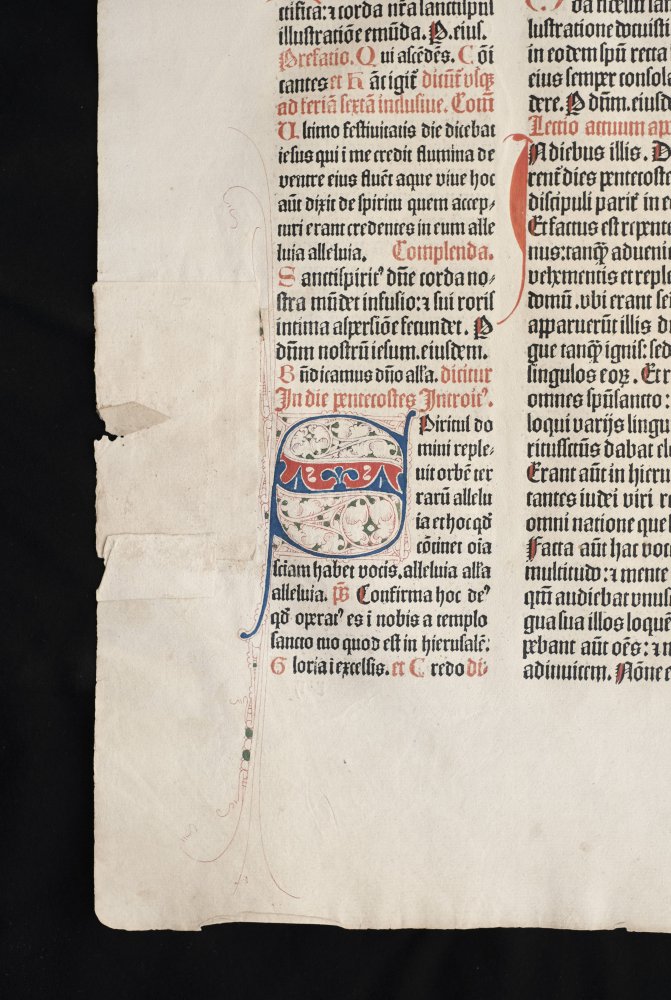 ctifica: ⁊ corda nr̃a sanctispūs
illustratiõe emūda. P. eius.
Prefatio. Q ui ascēdẽs. C õi
cantes et H ãc igit̃ dicūt̃ vsqꝫ
ad feriã sextã inclusiue. Cõm̃
U ltimo festiuitatis die dicebat
iesus qui ī me credit flumina de
ventre eius fluēt aque viue hoc
aūt dixit de spiritu quem accep⸗
turi erant credentes in eum alle
luia alleluia. Complenda.
S anctispirit⁹ dñe corda no⸗
stra mūdet infusio: ⁊ sui roris
intima aspersiõe fecundet. P
dūm nostrū iesum. eiusdem.
B ñdicamus dño all'a. dicitur
In die pentecostes Introit⁹.
Spiritus do
mini reple⸗
uit orbē ter
rarū allelu
ia et hoc qđ
cõtinet oīa
sciam habet vocis. alleluia all'a
alleluia. p̄s Confirma hoc de⁹
qđ operat⁹ es ī nobis a templo
sancto tuo quod est in hierusalē:
G loria ī excelsis. et C redo di⸗
lustratione docuisti
in eodem spū recta
eius semper consola
dere. P dūm. eiusd
Lectio actuum ap
In diebus illis. D
rent̃ dies pentecoste
discipuli parit̃ in e
Et factus est repente
nus: tanqꝫ adueni
vehementis et reple
domū. vbi erant se
apparuerūt illis di
gue tanqꝫ ignis: sed
singulos eoꝝ. Et r
omnes spūsancto:
loqui varijs lingu
ritussctūs dabat el
Erant aūt in hieru
tantes iudei viri re
omni natione que
Facta aūt hac voce
multitudo: ⁊ mente
qm̄ audiebat vnus
gua sua illos loquē
pebant aūt oēs: ⁊ m
adinuicem. Nõne e